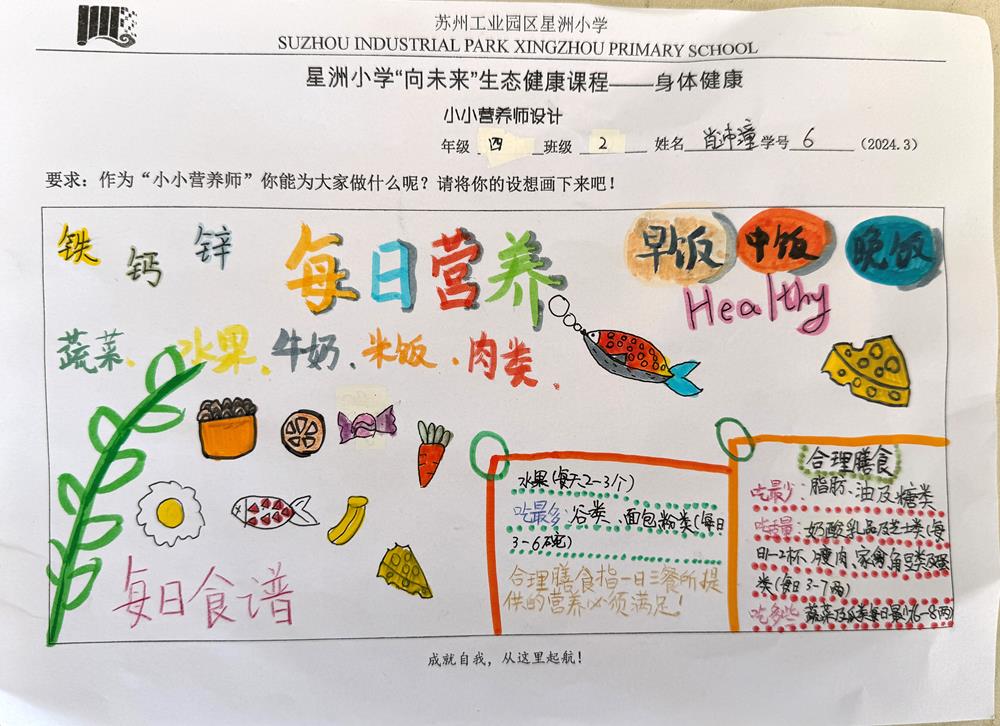 苏州工业园区星洲小学
SUZHOU INDUSTRIAL PARK XINGZHOU PRIMARY SCHOOL
星洲小学“向未来”生态健康课程——身体健康
小小营养师设计
年级 四 班级 2 姓名 肖沛潼 学号 6 （2024.3）
要求：作为“小小营养师”你能为大家做什么呢？请将你的设想画下来吧！
铁 钙 锌
每日营养
早饭 中饭 晚饭
Healthy
蔬菜、水果、牛奶、米饭、肉类、
水果(每天2-3个)
吃最多：谷类、面包粉类(每日
3-6碗)
合理膳食指一日三餐所提
供的营养必须满足！
合理膳食
吃最少：脂肪、油及糖类
吃适量：奶酸乳品及芝士类(每
日1-2杯、瘦肉、家禽鱼豆类及蛋
类(每日3-7两)
吃多些 蔬菜及瓜类每日最少(6-8两)
每日食谱
成就自我，从这里起航！